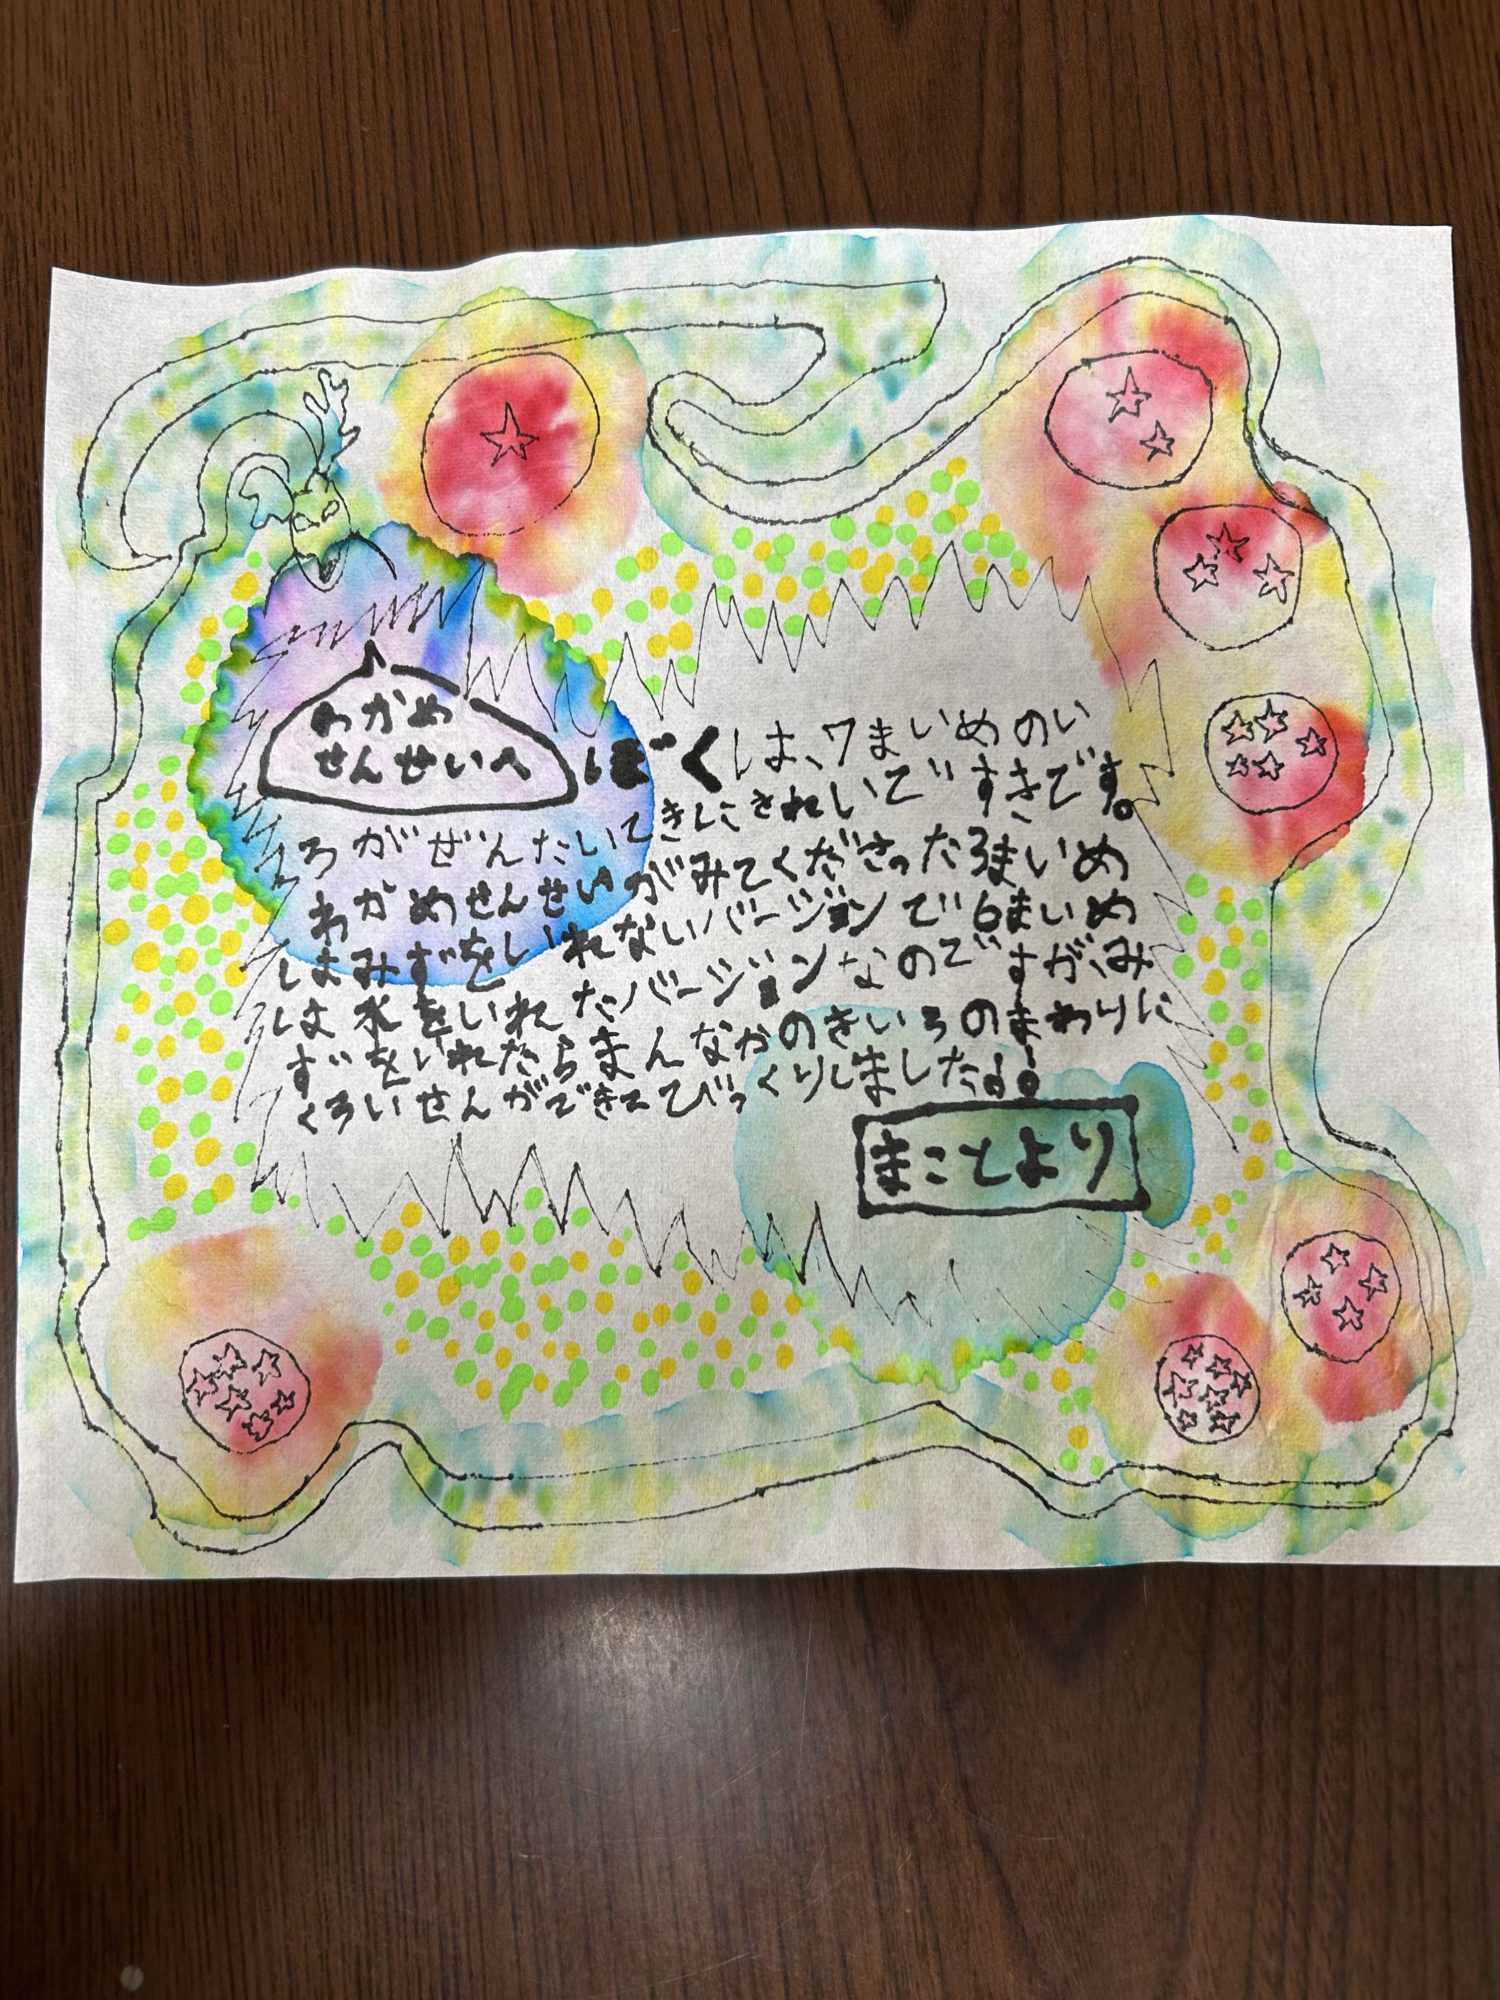 わかめ
せんせいへ
ぼくは、7まいめのい
ろがぜんたいてきにきれいで すきです。
わかめせんせいがみてくださった5まいめ
はみずをいれないバージョンで6まいめ
は水をいれたバージョンなのですが、み
ずをいれたらまんなかのきいろのまわりに
くろいせんができてびっくりしました!!
まことより